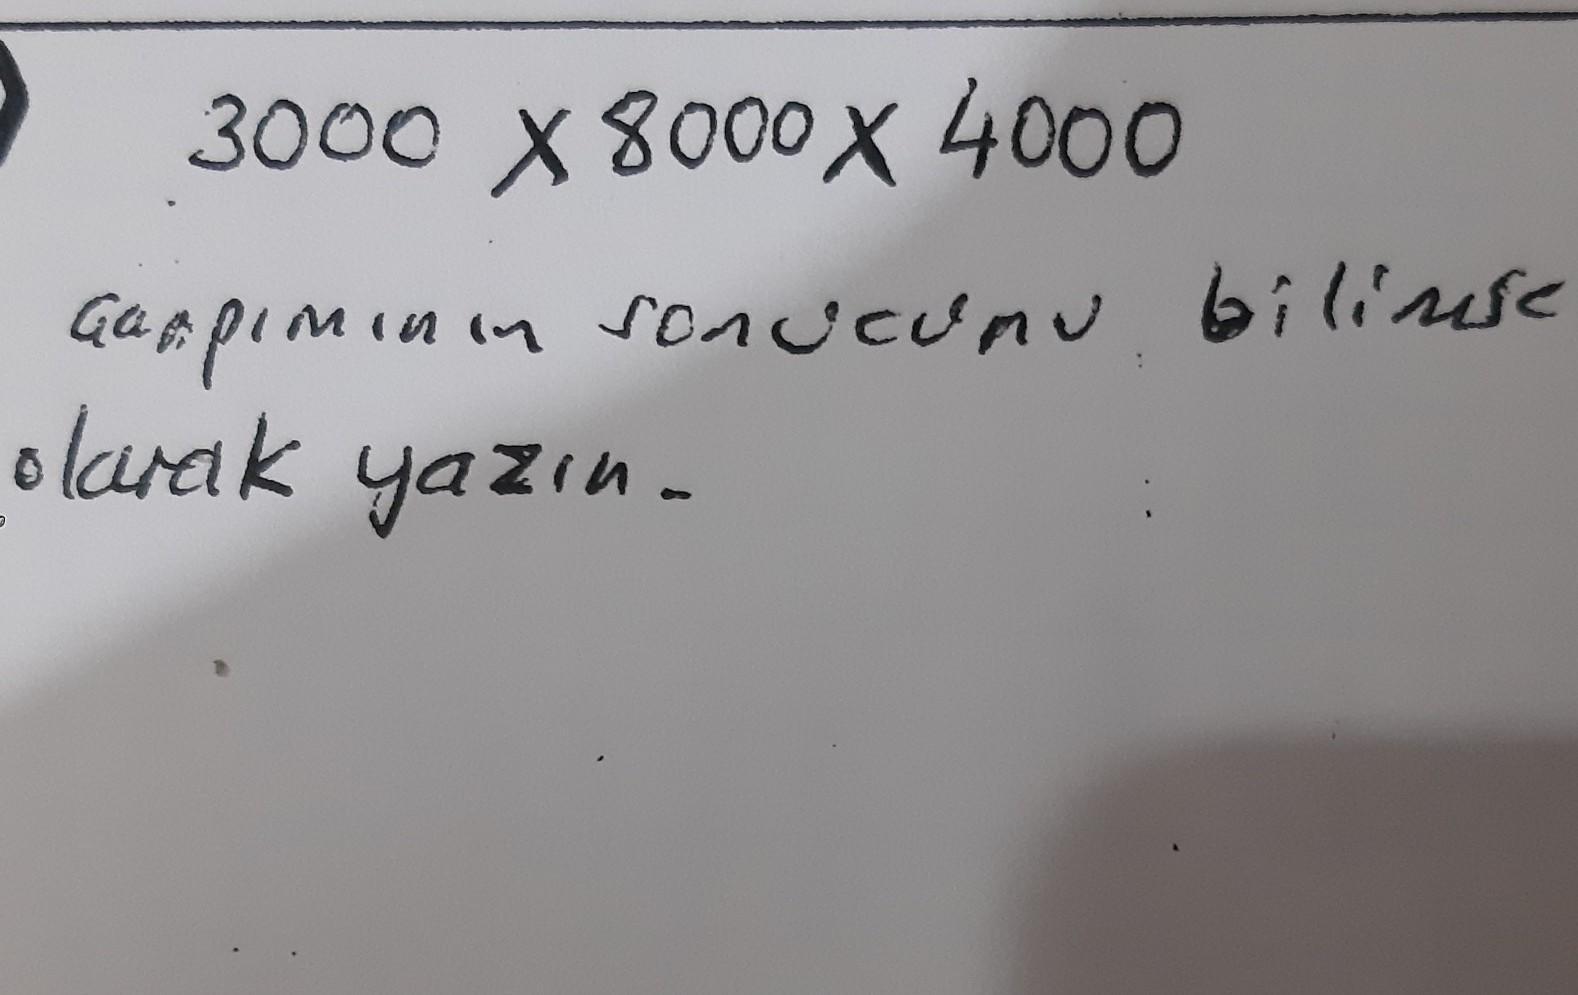 3000 X 8000 X 4000
çarpımının sonucunu bilimse
olarak yazın.